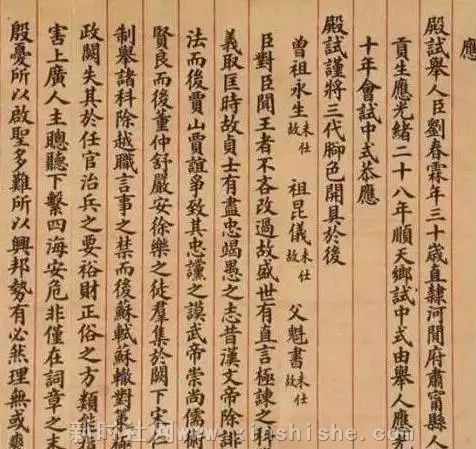 應
殿試舉人臣劉春霖年三十歲直隸河間府肅甯縣人
貢生應光緒二十八年順天鄉試中式由舉人應光
十年會試中式恭應
殿試謹將三代腳色開具於後
曾祖永生未仕故 祖昆儀未仕故 父魁書未仕故
臣對臣聞王者不吝改過故盛世有直言極諫之科
義取匡時故貞士有盡忠竭愚之志昔漢文帝除誹
法而後賈山賈誼爭致其忠讜之謨武帝崇尚儒術
賢良而後董仲舒嚴安徐樂之徒羣集於闕下宋仁
制舉諸科除越職言事之禁而後蘇軾蘇轍對策極
政闕失其於任官治兵之要裕財正俗之方類能指
害上廣人主聰聽下繫四海安危非僅在詞章之末
殷憂所以啟聖多難所以興邦勢有必然理無或爽
www.xinshishe.com